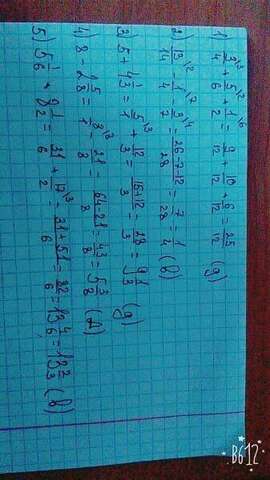 1. 3/4 /3 + 5/6 /2 + 1/2 /6 = 9/12 + 10/12 + 6/12 = 25/12 (д)
2) 13/14 /2 - 1/4 /7 - 3/7 /4 = 26-7-12/28 = 7/28 = 1/4 (в)
3. 5+4 1/3 = 5/1 /3 + 13/3 = 15+13/3 = 28/3 = 9 1/3 (д)
4) 8 - 2 5/8 = 8/1 - 21/8 = 64-21/8 = 43/8 = 5 3/8 (А)
5) 5 1/6 + 8 1/2 = 31/6 + 17/2 /3 = 31+51/6 = 82/6 = 13 4/6 = 13 2/3 (в)
B612